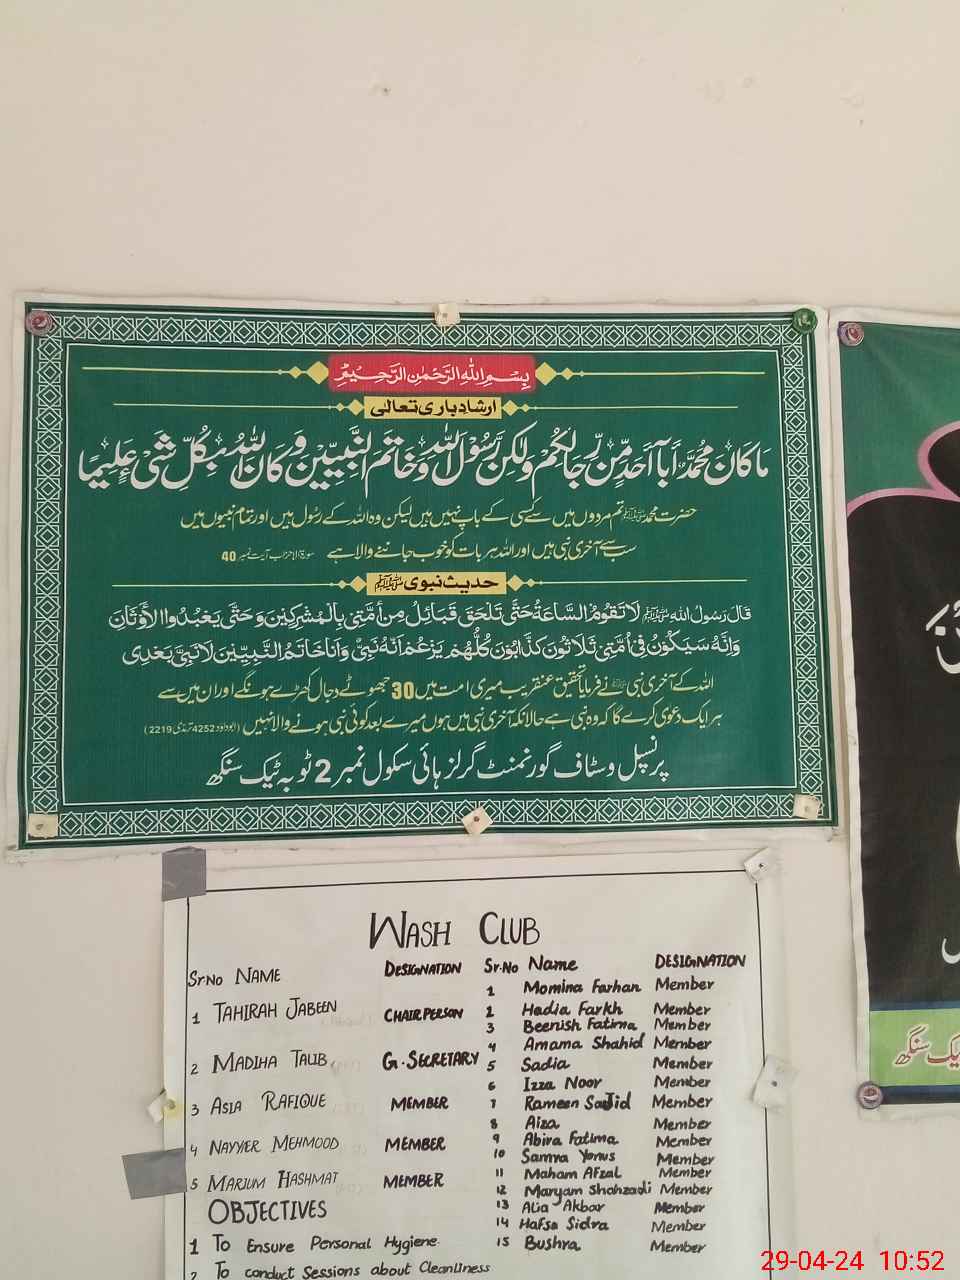 بِسْمِ اللهِ الرَّحْمٰنِ الرَّحِيْمِ
ارشادِ باری تعالیٰ
مَا كَانَ مُحَمَّدٌ اَبَآ اَحَدٍ مِّنْ رِّجَالِكُمْ وَلٰكِنْ رَّسُوْلَ اللهِ وَخَاتَمَ النَّبِيّٖنَ وَكَانَ اللهُ بِكُلِّ شَىْءٍ عَلِيْمًا
حضرت محمد ﷺ تم مردوں میں سے کسی کے باپ نہیں ہیں لیکن وہ اللہ کے رسول ہیں اور تمام نبیوں میں
سب سے آخری نبی ہیں اور اللہ ہر بات کو خوب جاننے والا ہے سورۃ الاحزاب آیت نمبر 40
حدیث نبوی ﷺ
قَالَ رَسُوْلُ الله ﷺ لَا تَقُوْمُ السَّاعَةُ حَتّٰى تَلْحَقَ قَبَائِلُ مِنْ اُمَّتِىْ بِالْمُشْرِكِيْنَ وَحَتّٰى يَعْبُدُوا الْاَوْثَانَ
وَاِنَّهٗ سَيَكُوْنُ فِىْ اُمَّتِىْ ثَلَاثُوْنَ كَذَّابُوْنَ كُلُّهُمْ يَزْعُمُ اَنَّهٗ نَبِىٌّ وَاَنَا خَاتَمُ النَّبِيّٖنَ لَا نَبِىَّ بَعْدِىْ
اللہ کے آخری نبی ﷺ نے فرمایا تحقیق عنقریب میری امت میں 30 جھوٹے دجال کھڑے ہونگے اور ان میں سے
ہر ایک دعویٰ کرے گا کہ وہ نبی ہے حالانکہ آخری نبی میں ہوں میرے بعد کوئی نبی ہونے والا نہیں (ابوداؤد 4252 ترمذی 2219)
پرنسپل و سٹاف گورنمنٹ گرلز ہائی سکول نمبر 2 ٹوبہ ٹیک سنگھ
ٹیک سنگھ
WASH CLUB
Sr.No NAME DESIGNATION
1 TAHIRAH JABEEN CHAIRPERSON
2 MADIHA TALIB G.SECRETARY
3 ASIA RAFIQUE MEMBER
4 NAYYER MEHMOOD MEMBER
5 MARIUM HASHMAT MEMBER
OBJECTIVES
1 To Ensure Personal Hygiene
2 To conduct Sessions about Cleanliness
Sr.No Name DESIGNATION
1 Momina Farhan Member
2 Hadia Farkh Member
3 Beenish Fatima Member
4 Amama Shahid Member
5 Sadia Member
6 Izza Noor Member
7 Rameen Sajid Member
8 Aiza Member
9 Abira Fatima Member
10 Samra Yonus Member
11 Maham Afzal Member
12 Maryam Shahzadi Member
13 Alia Akbar Member
14 Hafsa Sidra Member
15 Bushra Member
29-04-24 10:52